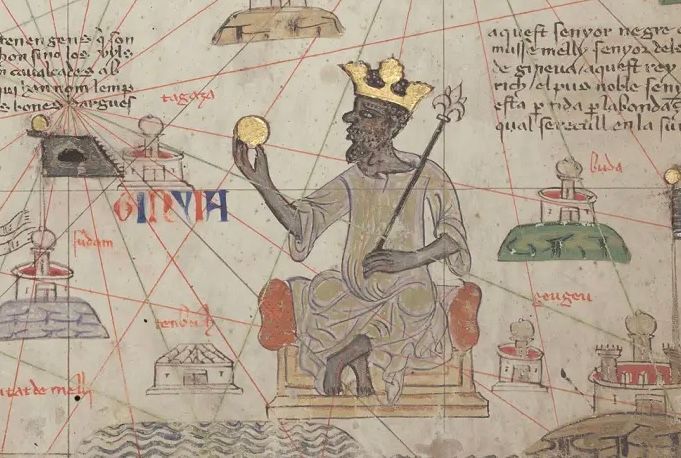 tenen gens q̃ son
hon sino los uyls
n caualcades ab
qui han nom lemp
s bones dargues
tagaza
GINYIA
sudam
tenbuch
ciutat de melli
aquest senyor negre
musse melly senyor dels
de gineua aquest rey
rich el pus noble seny
esta ptida p labondãs
qual se recull en la sua
buda
geugeu